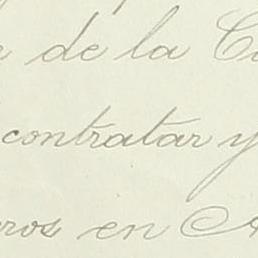 de la
contratar y
en